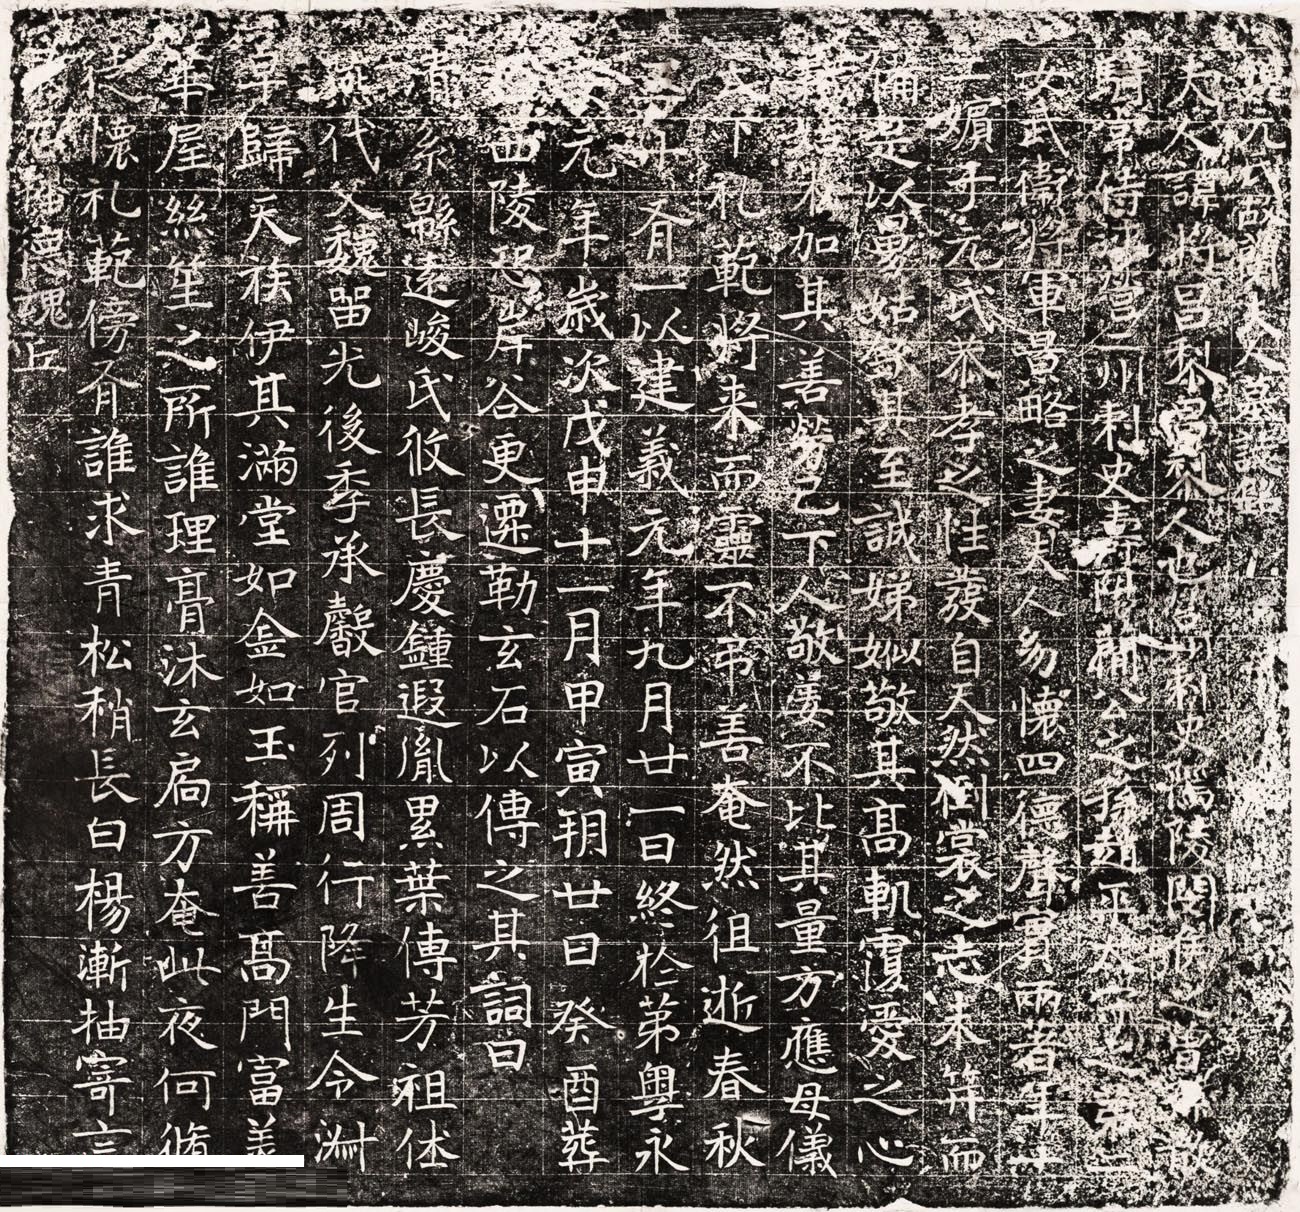 魏元氏故蘭夫人墓誌銘
夫人諱將昌黎昌黎人也營州刺史儒陵閔侯之曾孫散
騎常侍 營州刺史 公之孫趙平太守之第二
女武衛將軍景略之妻夫人幼懷四德聲實兩著年十
二嬪于元氏恭孝之性發自天然倒裳之志未笄而
備是以舅姑 其至誠娣姒敬其高軌覆愛之心
加其善勞己下人敬妾不比其量方應母儀
下礼範將来而靈不弔善奄然徂逝春秋
廿有一以建義元年九月廿一日終於第粤永
元年歲次戊申十一月甲寅朔廿日癸酉葬
西陵恐岸谷更遷勒玄石以傳之其詞曰
系緜遠峻氏攸長慶鍾遐胤累葉傳芳祖佐
代父魏留光後季承馨官列周行降生令淑
早歸天族伊其滿堂如金如玉稱善高門富美
華屋絲筐之所誰理膏沐玄扃方奄此夜何脩
徒懷礼範傍有誰求青松稍長白楊漸抽寄言
石 德 丘